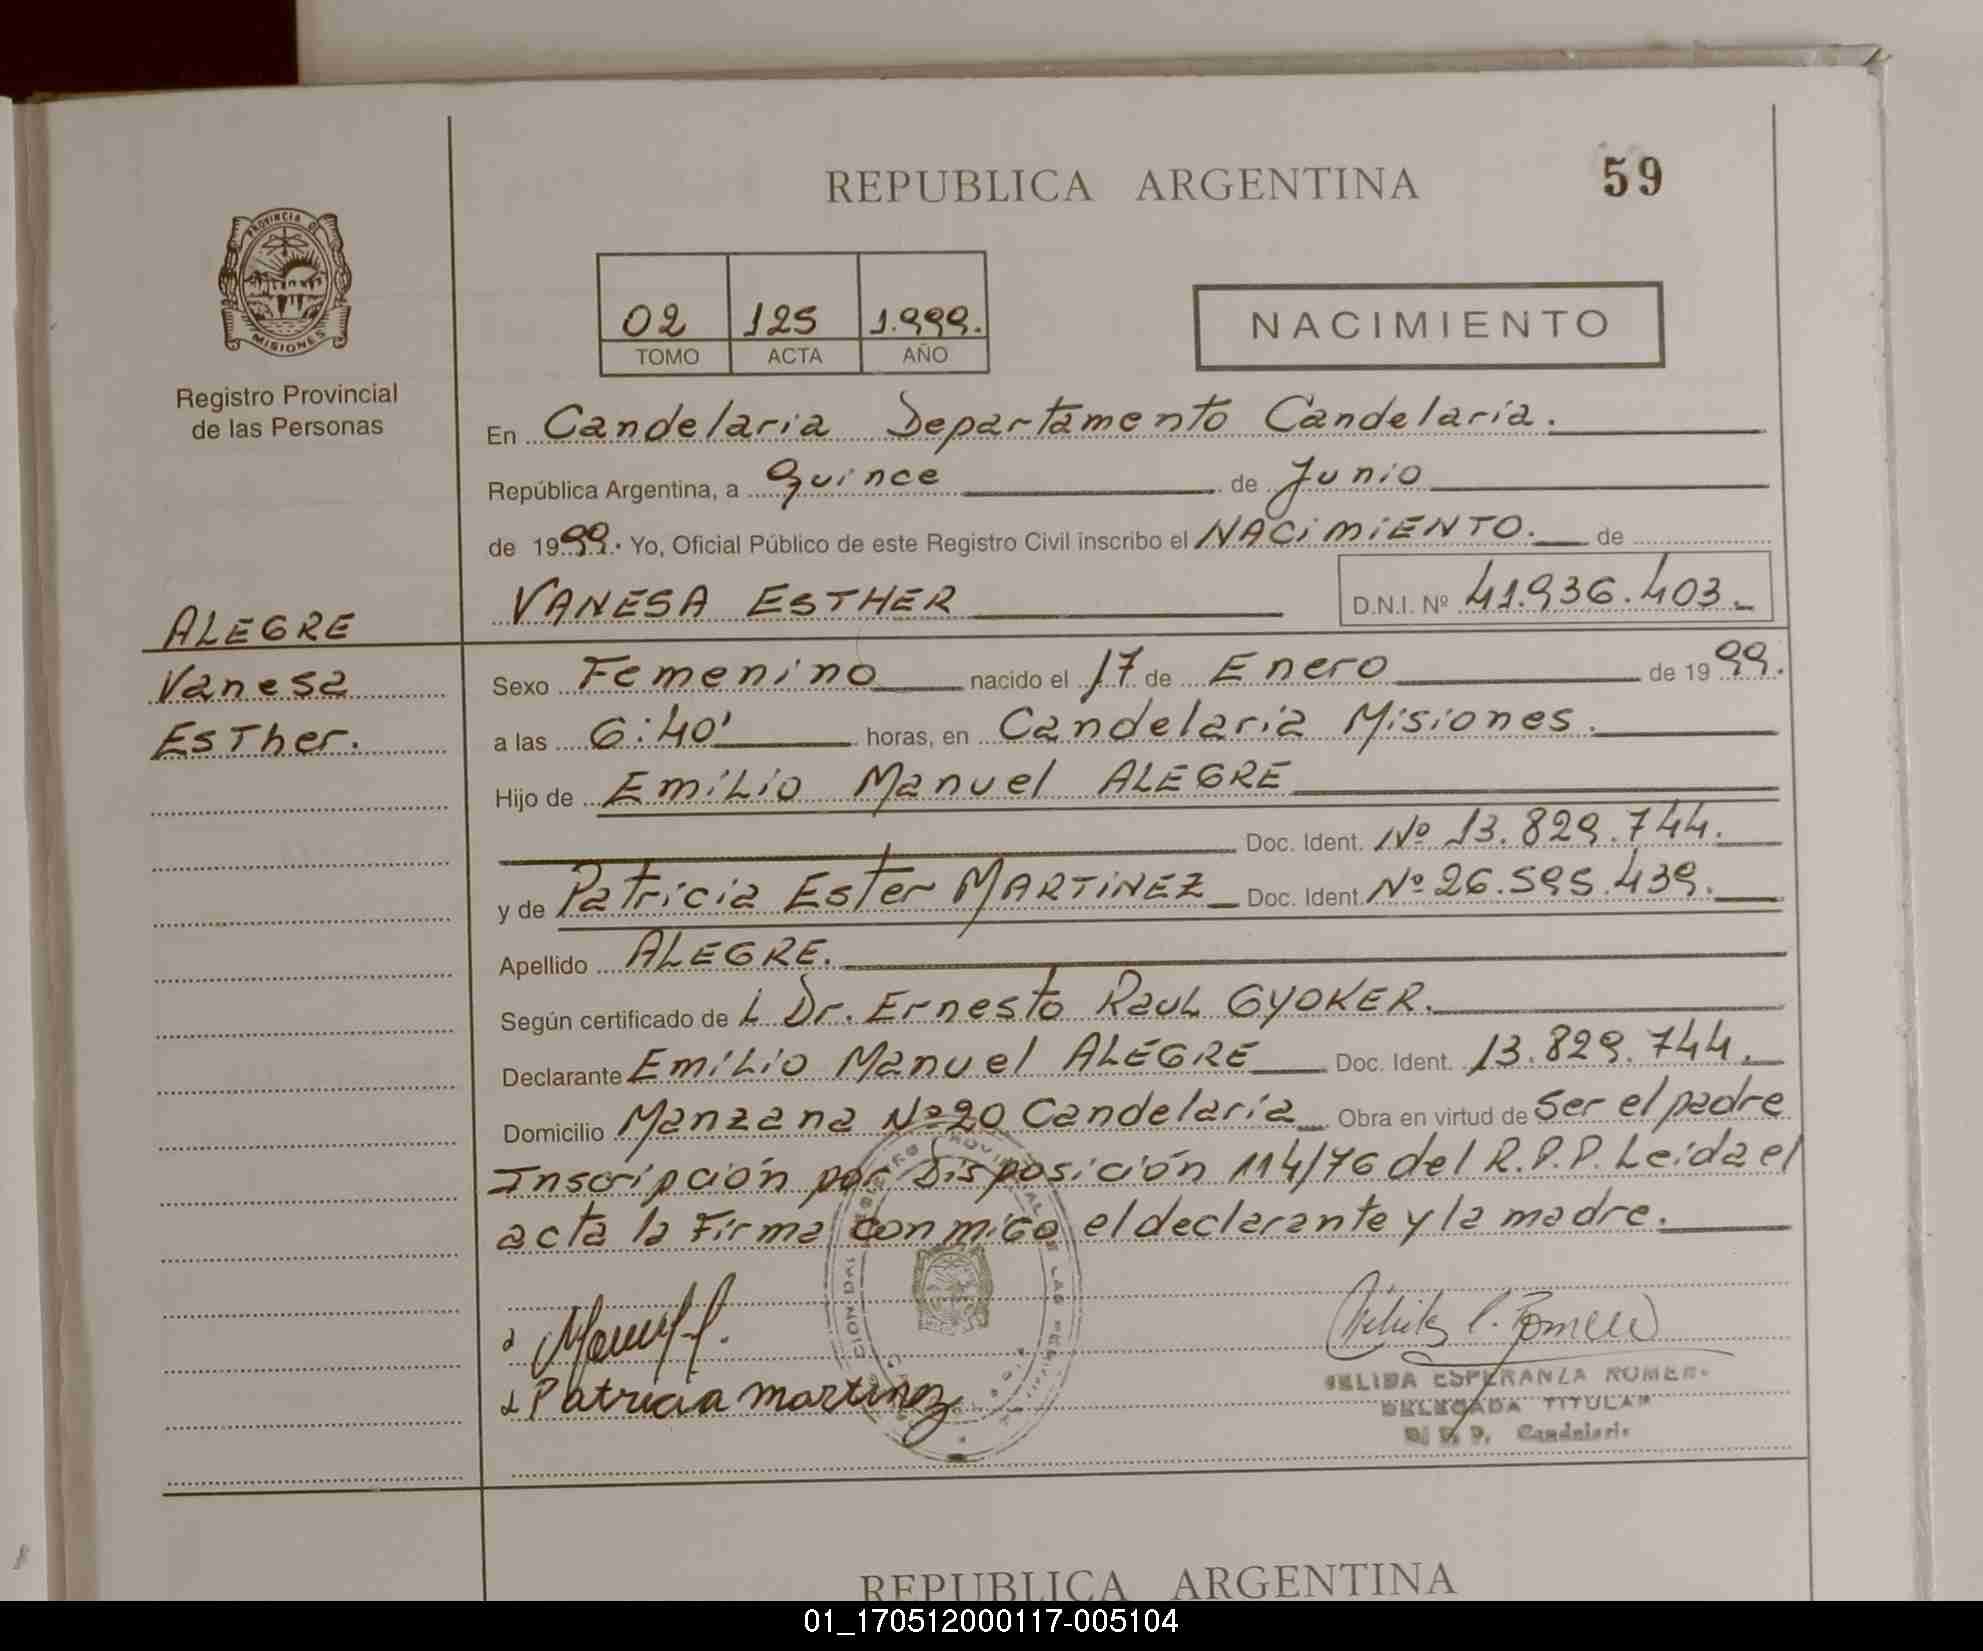 REPUBLICA ARGENTINA
59
PROVINCIA DE
MISIONES
Registro Provincial
de las Personas
02 125 1.999.
TOMO ACTA AÑO
NACIMIENTO
En Candelaria Departamento Candelaria.
República Argentina, a Quince de Junio
de 1999. Yo, Oficial Público de este Registro Civil inscribo el NACIMIENTO. de
VANESA ESTHER D.N.I. Nº 41.936.403.
ALEGRE
Vanesa
Esther.
Sexo Femenino nacido el 17 de Enero de 1999.
a las 6:40' horas, en Candelaria Misiones.
Hijo de Emilio Manuel ALEGRE
Doc. Ident. Nº 13.829.744.
y de Patricia Ester MARTINEZ Doc. Ident. Nº 26.595.439.
Apellido ALEGRE.
Según certificado de L Dr. Ernesto Raul GYOKER.
Declarante Emilio Manuel ALEGRE Doc. Ident. 13.829.744.
Domicilio Manzana Nº 20 Candelaria Obra en virtud de Ser el padre
Inscripción por Disposición 114/76 del R.P.P. Leida el
acta la Firma conmigo el declarante y la madre.
Patricia martinez
ESPERANZA ROMERO
DELEGADA TITULAR
Candelaria
REPUBLICA ARGENTINA
01_170512000117-005104